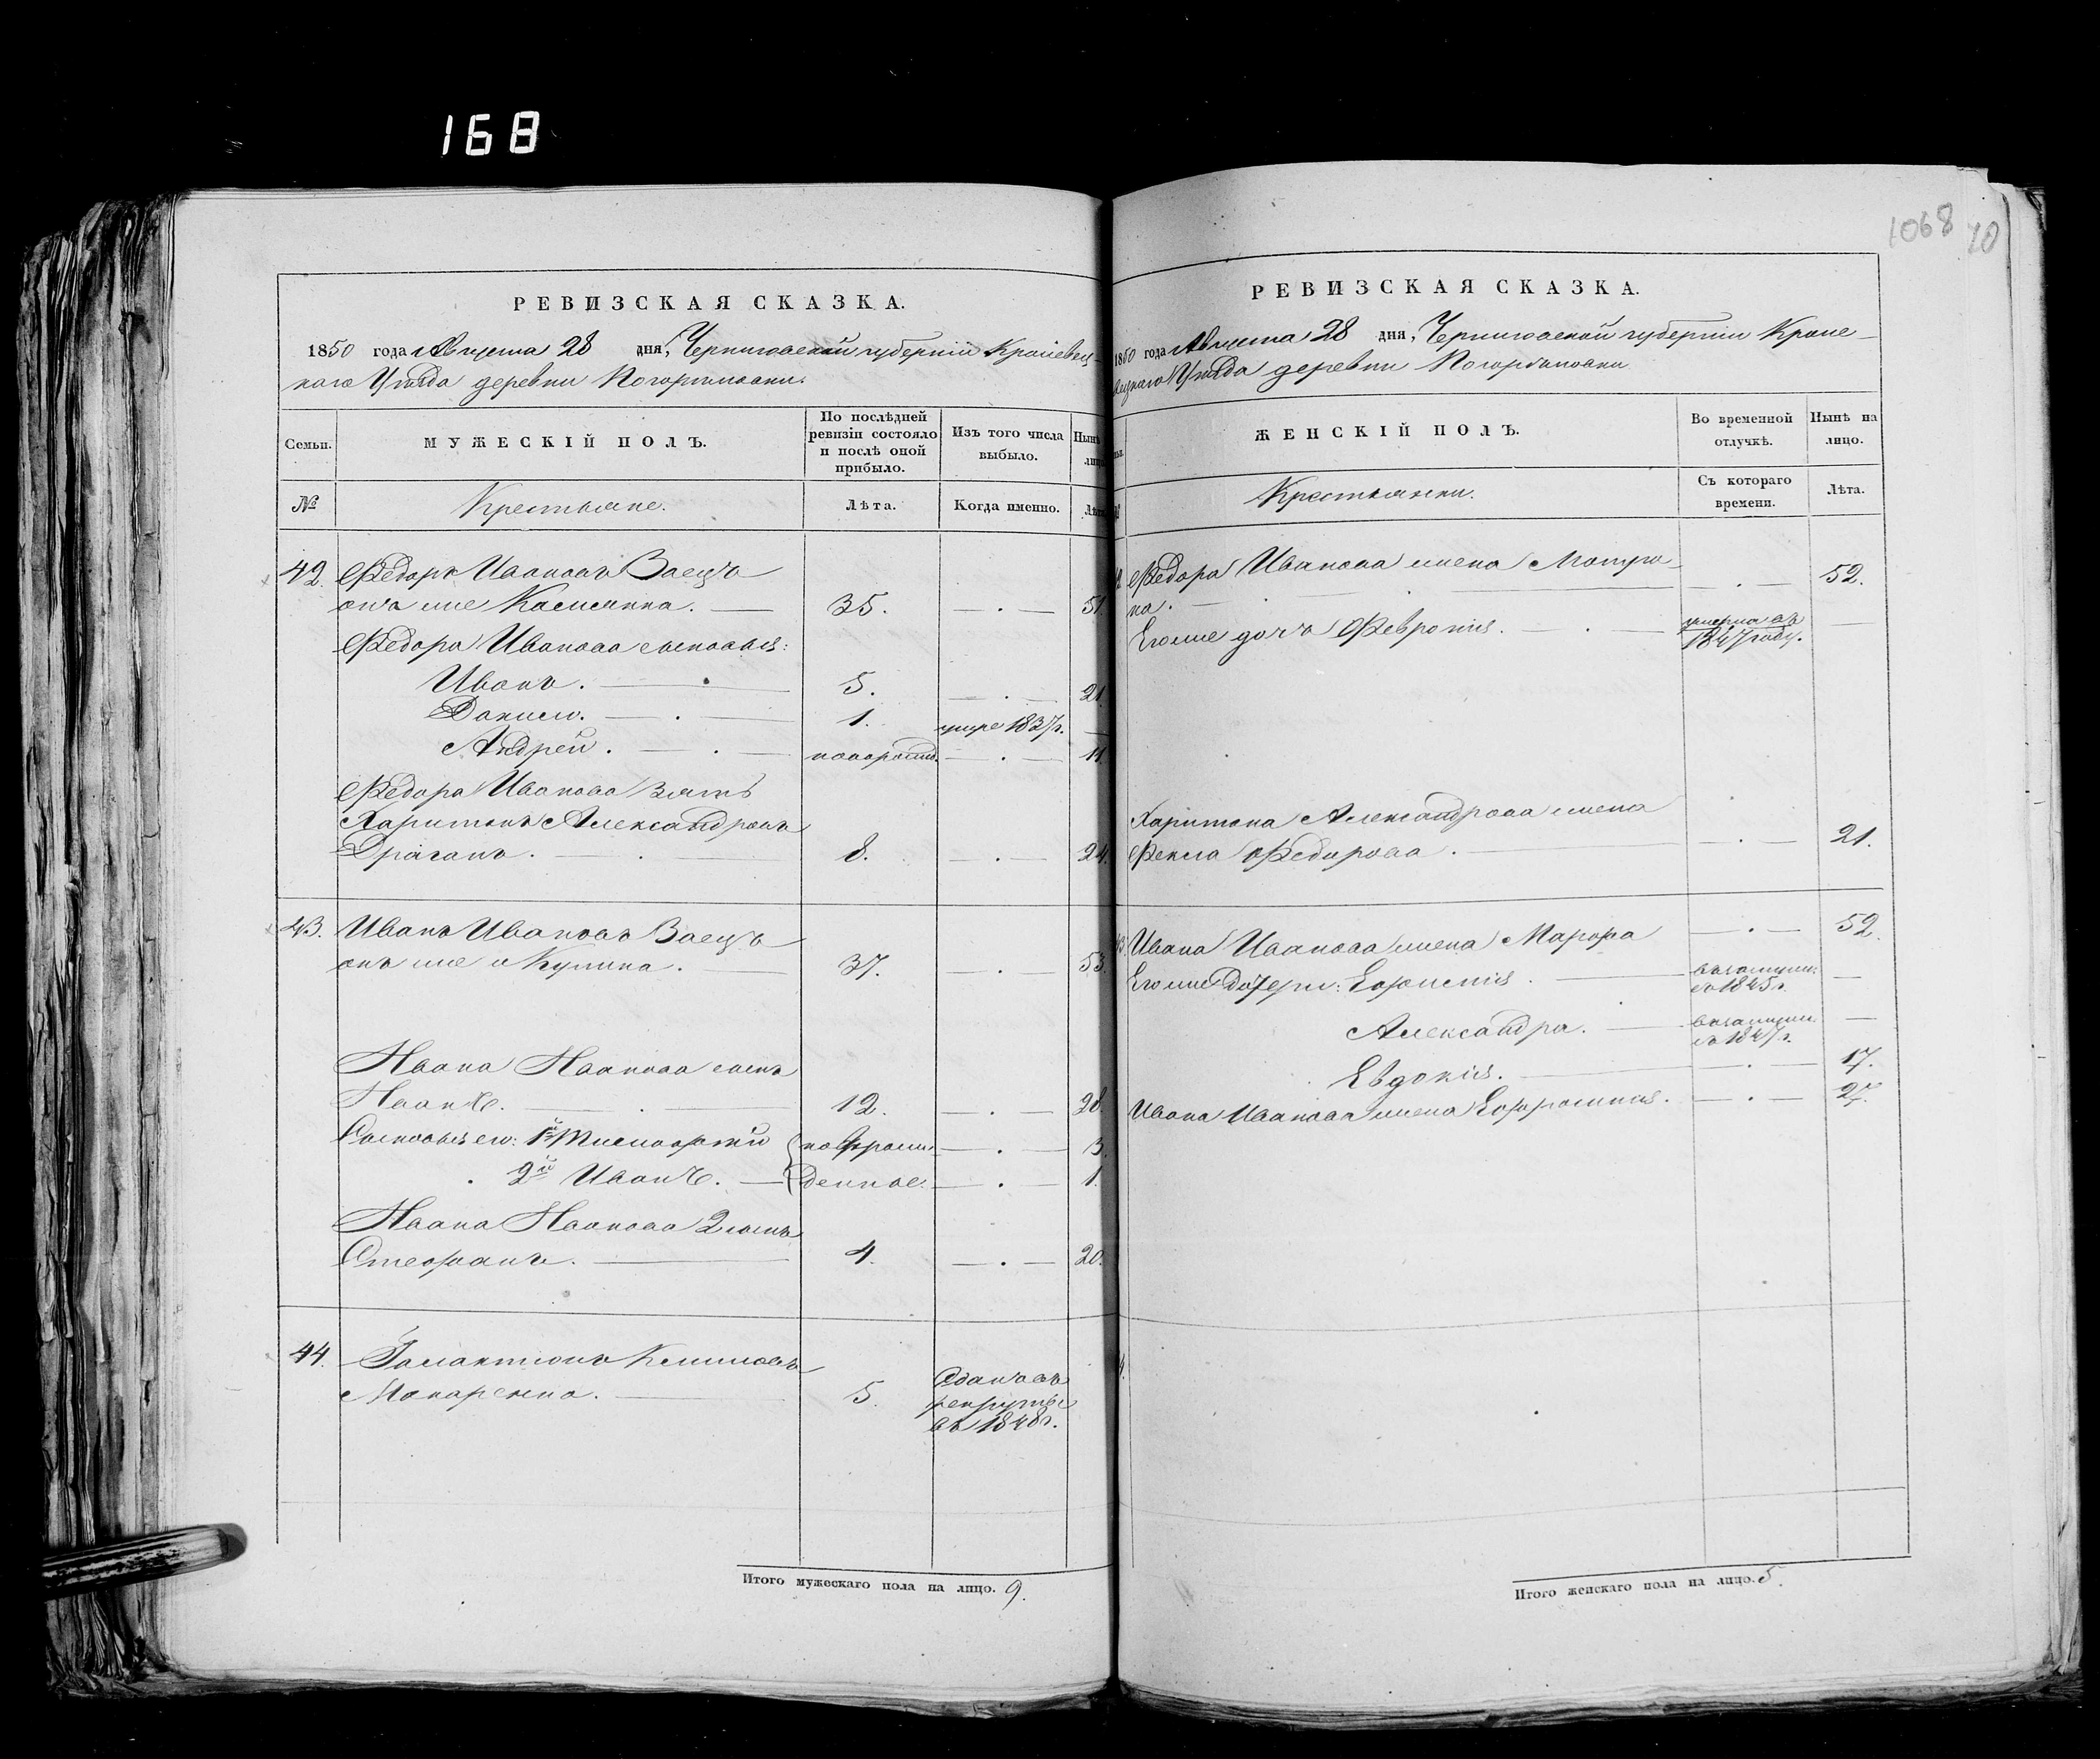 168
1068 70
РЕВИЗСКАЯ СКАЗКА.
1850 года Августа 28 дня, Черниговской губерніи Кролевец-
каго Уѣзда деревни Погорѣловки.
Семьи.
МУЖЕСКІЙ ПОЛЪ.
По послѣдней ревизіи состояло и послѣ оной прибыло.
Изъ того числа выбыло.
Нынѣ лицо
№
Крестьяне.
Лѣта.
Когда именно.
Лѣта
42. Федоръ Ивановъ Заецъ
онъ же Касьянка. — 35. — . — 51.
Федора Иванова сыновья:
Иванъ. — 5. — . — 21.
Данило. — . — 1. умре 1837г. —
Андрей. — . — новорожд. — . — 11.
Федора Иванова зять
Харитонъ Александровъ
Драганъ. — . 8. — . — 24.
43. Иванъ Ивановъ Заецъ
онъ же и Купина. — 37. — . — 53.
Ивана Иванова сынъ
Иванъ. — . — 12. — . — 28.
Сыновья его: 1й Тимофѣй новорож- — . — 3.
2й Иванъ. — денные. — . — 1.
Ивана Иванова 2 сынъ
Стефанъ. — 4. — . — 20.
44. Галактіонъ Климовъ
Макаренко. — 5. Отданъ въ
рекруты
въ 1848г.
Итого мужескаго пола на лицо. 9.
РЕВИЗСКАЯ СКАЗКА.
1850 года Августа 28 дня, Черниговской губерніи Кроле-
вецкаго Уѣзда деревни Погорѣловки
ЖЕНСКІЙ ПОЛЪ.
Во временной отлучкѣ.
Нынѣ на лицо.
Крестьянки.
Съ котораго времени.
Лѣта.
Федора Иванова жена Мотро-
на. — . — — . — 52.
Его же дочь Февронія. — . — умерла въ
1847 году. —
Харитона Александрова жена
Фекла Федорова. — — . — 21.
Ивана Иванова жена Марфа — . — 52.
Его же дочери: Евфимія. — въ замуж.
въ 1845г. —
Александра. — въ замуж.
въ 1847г. —
Евдокія. — — . — 17.
Ивана Иванова жена Евфросинія. — . — 27.
Итого женскаго пола на лицо. 5.